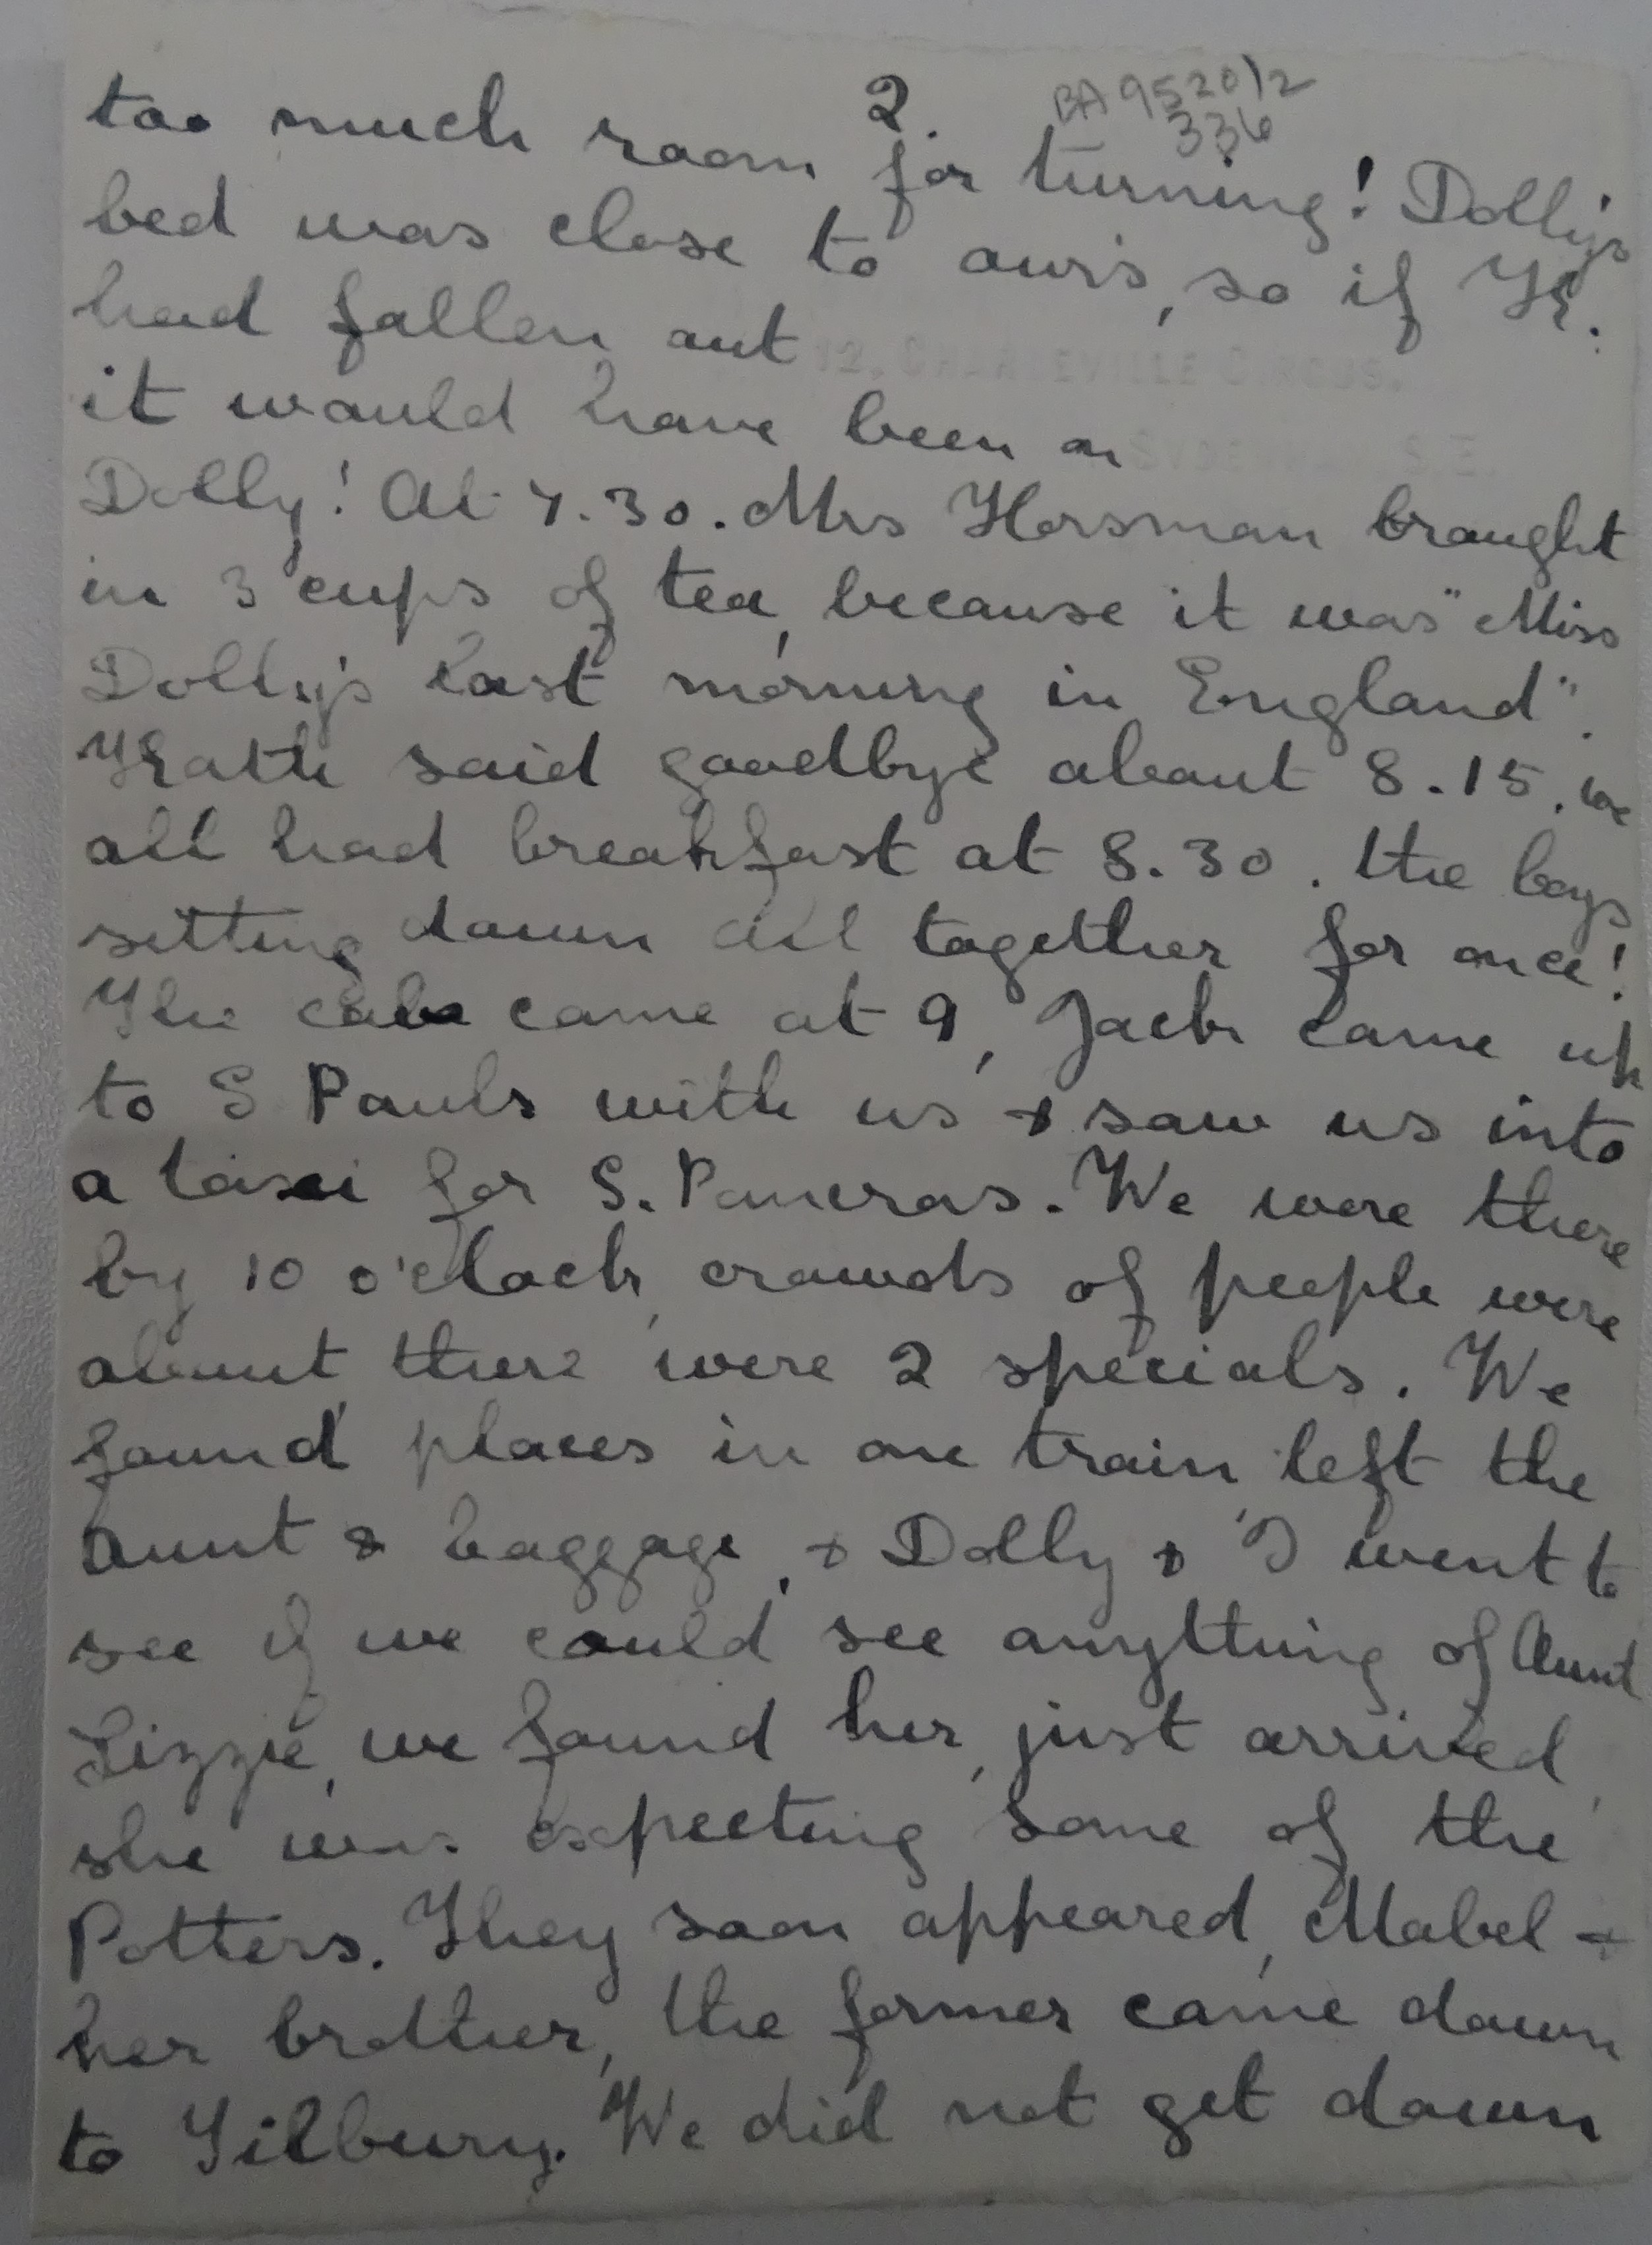 2.
BA 9520/2
336
too much room for turning! Dolly's
bed was close to ours, so if K.
had fallen out
12, CHARLEVILLE CIRCUS.
it would have been on
SYDENHAM, S.E.
Dolly! At 7.30. Mrs Horsman brought
in 3 cups of tea, because it was "Miss
Dolly's last morning in England".
Kath said goodbye about 8.15. we
all had breakfast at 8.30. the boys
sitting down all together for once!
The cab came at 9, Jack came up
to S Pauls with us & saw us into
a taxi for S. Pancras. We were there
by 10 o'clock, crowds of people were
about, there were 2 specials. We
found places in one train left the
Aunt & baggage, & Dolly & I went to
see if we could see anything of Aunt
Lizzie, we found her, just arrived,
she was expecting some of the
Potters. They soon appeared, Mabel &
her brother, the former came down
to Tilbury. We did not get down